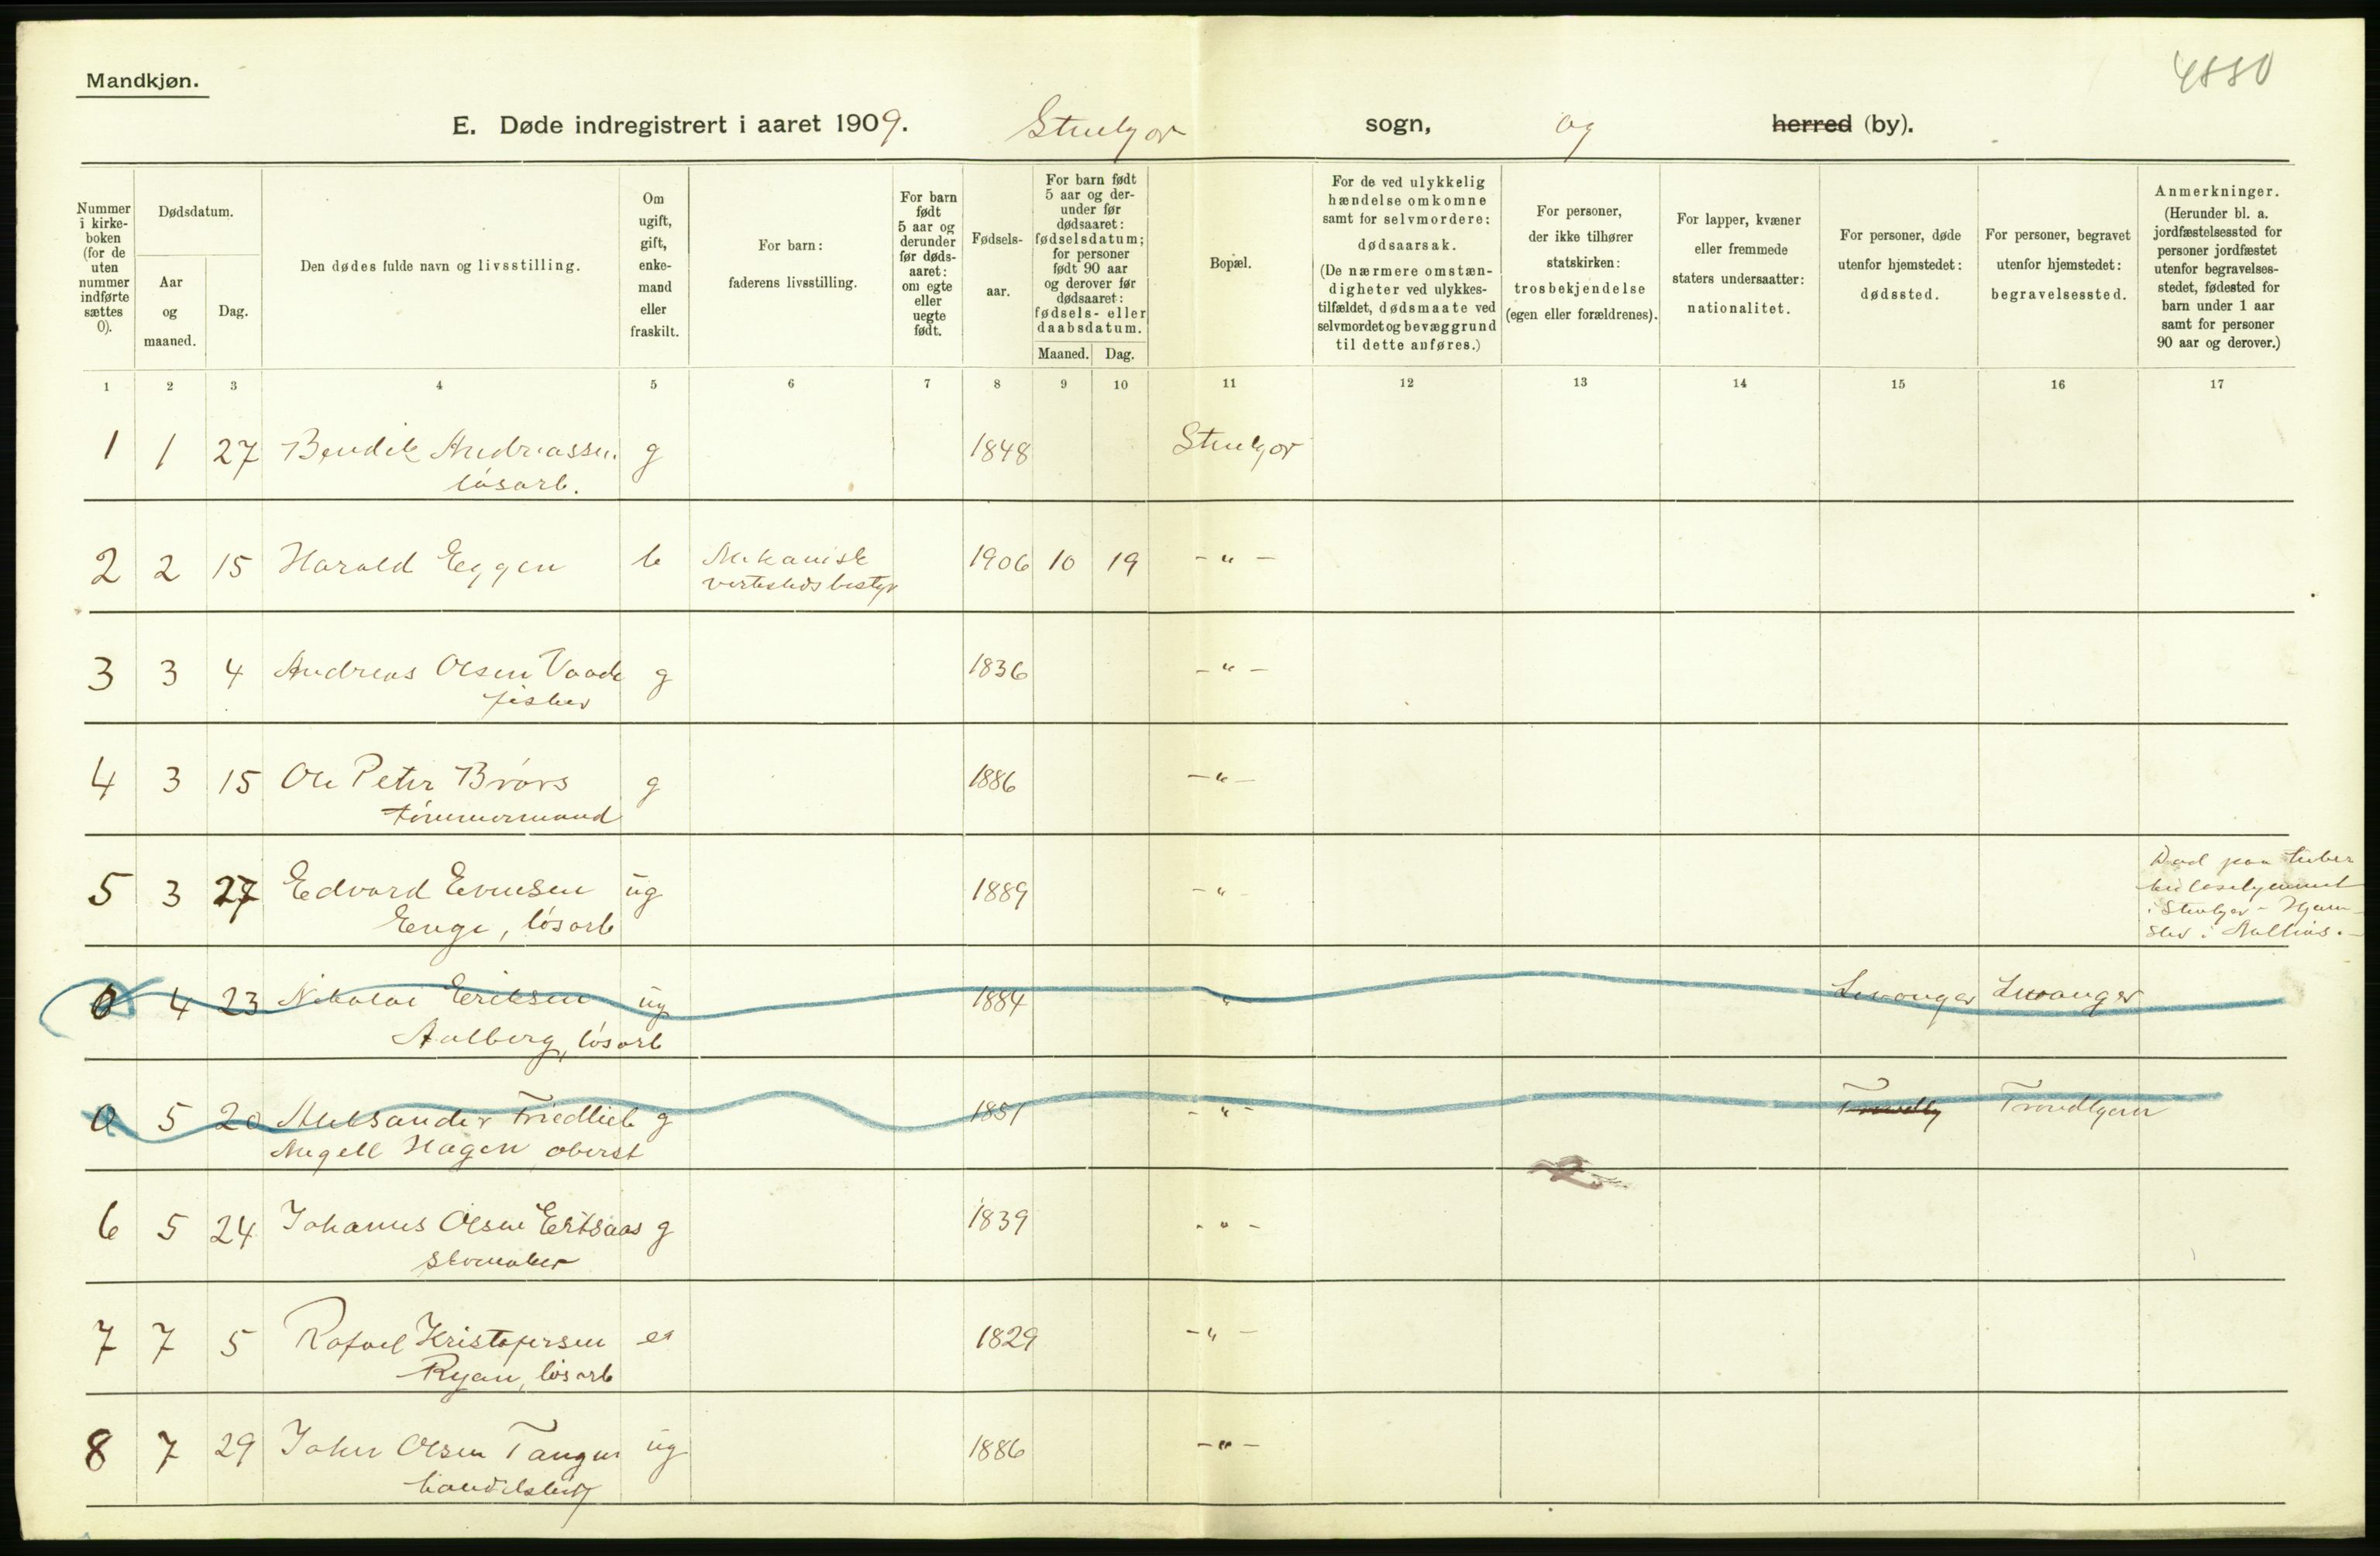 Mandkjøn.
4880
E. Døde indregistrert i aaret 1909. Stenkjær sogn, og herred (by).
Nummer i kirke- boken (for de uten nummer indførte sættes 0).
Dødsdatum.
Aar og maaned.
Dag.
Den dødes fulde navn og livsstilling.
Om ugift, gift, enke- mand eller fraskilt.
For barn: faderens livsstilling.
For barn født 5 aar og derunder før døds- aaret: om egte eller uegte født.
Fødsels- aar.
For barn født 5 aar og der- under før dødsaaret: fødselsdatum; for personer født 90 aar og derover før dødsaaret: fødsels- eller daabsdatum.
Maaned. Dag.
Bopæl.
For de ved ulykkelig hændelse omkomne samt for selvmordere: dødsaarsak. (De nærmere omstæn- digheter ved ulykkes- tilfældet, dødsmaate ved selvmordet og bevæggrund til dette anføres.)
For personer, der ikke tilhører statskirken: trosbekjendelse (egen eller forældrenes).
For lapper, kvæner eller fremmede staters undersaatter: nationalitet.
For personer, døde utenfor hjemstedet: dødssted.
For personer, begravet utenfor hjemstedet: begravelsessted.
Anmerkninger. (Herunder bl. a. jordfæstelsessted for personer jordfæstet utenfor begravelses- stedet, fødested for barn under 1 aar samt for personer 90 aar og derover.)
1 2 3 4 5 6 7 8 9 10 11 12 13 14 15 16 17
1 1 27 Bendik Andreassen g 1848 Stenkjær
løsarb.
2 2 15 Harald Eggen b Mekanisk 1906 10 19 - " -
verkstedsbestyr
3 3 4 Andreas Olsen g 1836 - " -
fisker
4 3 15 Ole Peter Brørs g 1886 - " -
tømmermand
5 3 27 Edvard Evensen ug 1889 - " - Død paa tuber
Enge, løsarb
i Stenkjær - Hjem-
sted i
0 4 23 Nikolai Eriksen ug 1884 " Levanger Levanger
Aalberg, løsarb
0 5 20 Aleksander Friedlieb g 1851 - " - Trondhj Trondhjem
Angell Hagen oberst
6 5 24 Johannes Olsen g 1839 - " -
skomaker
7 7 5 Rafael Kristofersen e 1829 - " -
Ryan, løsarb
8 7 29 Johan Olsen Tangen ug 1886 - " -
handelsbetj